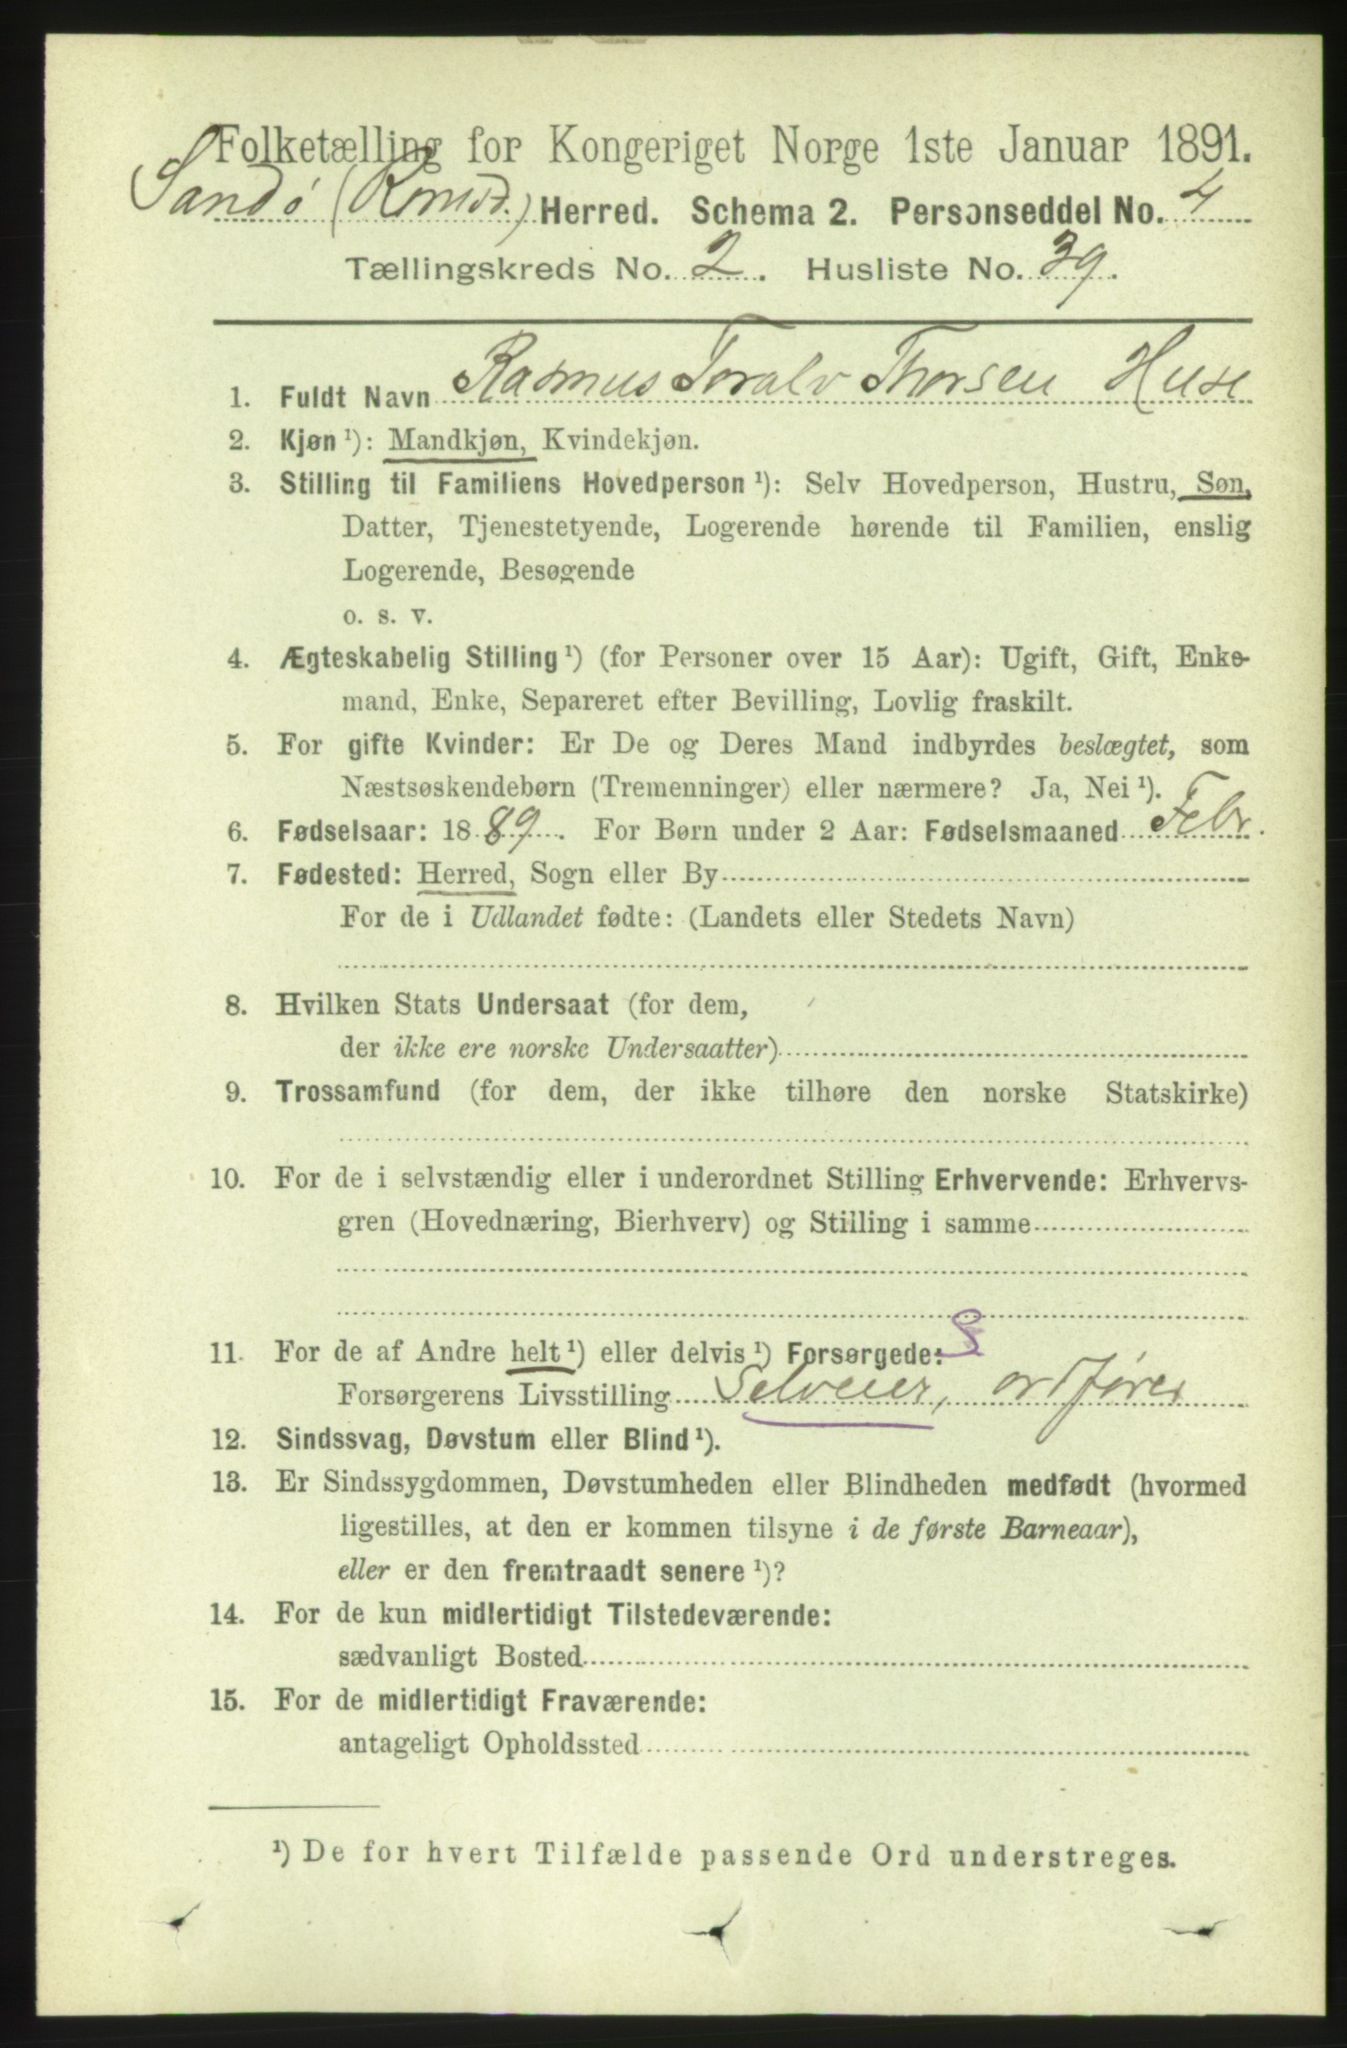 Folketælling for Kongeriget Norge 1ste Januar 1891.
Sandø (Romsd.) Herred. Schema 2. Personseddel No. 4
Tællingskreds No. 2. Husliste No. 39.
1. Fuldt Navn Rasmus Toralv Thorsen Huse
2. Kjøn ¹): Mandkjøn, Kvindekjøn.
3. Stilling til Familiens Hovedperson ¹): Selv Hovedperson, Hustru, Søn,
Datter, Tjenestetyende, Logerende hørende til Familien, enslig
Logerende, Besøgende
o. s. v.
4. Ægteskabelig Stilling ¹) (for Personer over 15 Aar): Ugift, Gift, Enke-
mand, Enke, Separeret efter Bevilling, Lovlig fraskilt.
5. For gifte Kvinder: Er De og Deres Mand indbyrdes beslægtet, som
Næstsøskendebørn (Tremenninger) eller nærmere? Ja, Nei ¹).
6. Fødselsaar: 1889. For Børn under 2 Aar: Fødselsmaaned Febr.
7. Fødested: Herred, Sogn eller By
For de i Udlandet fødte: (Landets eller Stedets Navn)
8. Hvilken Stats Undersaat (for dem,
der ikke ere norske Undersaatter)
9. Trossamfund (for dem, der ikke tilhøre den norske Statskirke)
10. For de i selvstændig eller i underordnet Stilling Erhvervende: Erhvervs-
gren (Hovednæring, Bierhverv) og Stilling i samme
11. For de af Andre helt ¹) eller delvis ¹) Forsørgede: S
Forsørgerens Livsstilling Selveier, ordfører
12. Sindssvag, Døvstum eller Blind ¹).
13. Er Sindssygdommen, Døvstumheden eller Blindheden medfødt (hvormed
ligestilles, at den er kommen tilsyne i de første Barneaar),
eller er den fremtraadt senere ¹)?
14. For de kun midlertidigt Tilstedeværende:
sædvanligt Bosted
15. For de midlertidigt Fraværende:
antageligt Opholdssted
¹) De for hvert Tilfælde passende Ord understreges.